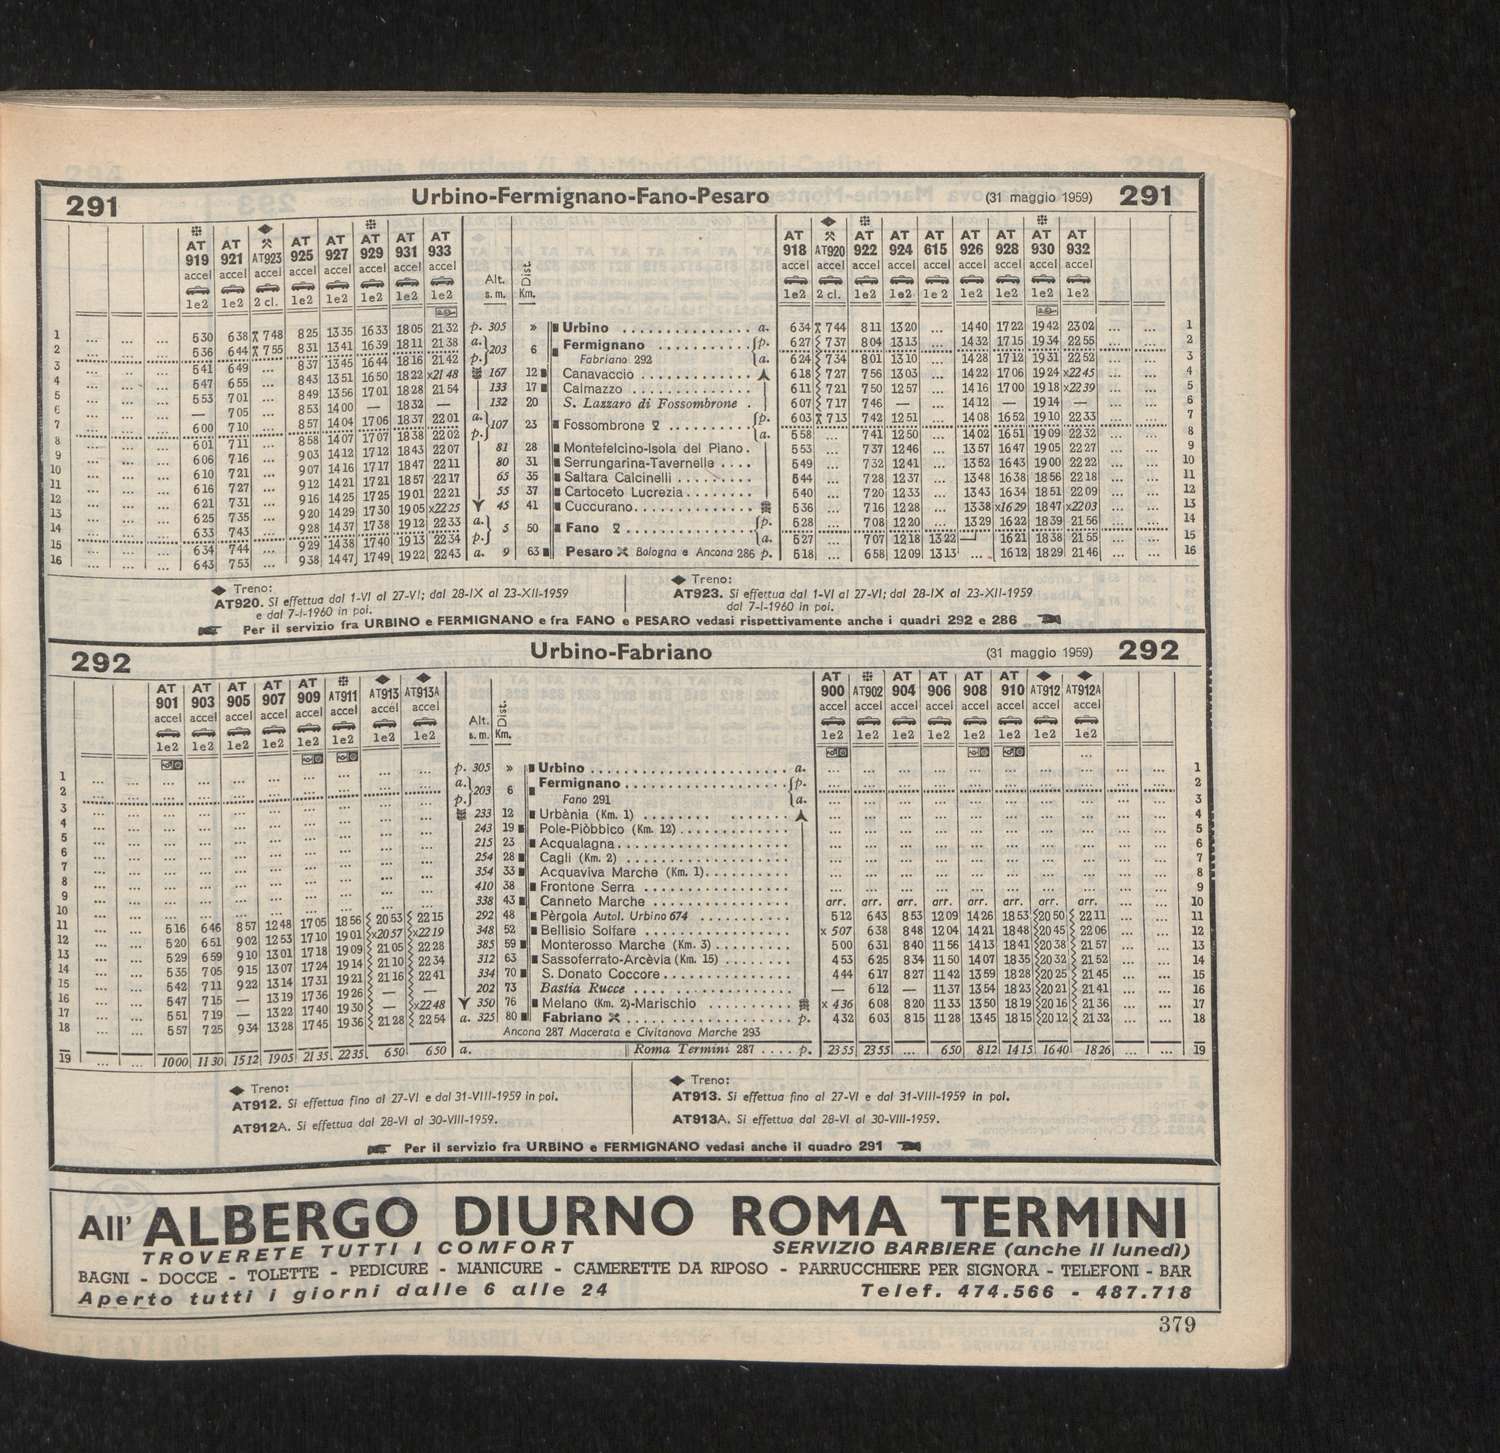 291 Urbino-Fermignano-Fano-Pesaro (31 maggio 1959) 291
AT 919 AT 921 AT923 AT 925 AT 927 AT 929 AT 931 AT 933 AT 918 AT920 AT 922 AT 924 AT 615 AT 926 AT 928 AT 930 AT 932
accel accel accel accel accel accel accel accel Alt. s. m. Dist. Km. accel accel accel accel accel accel accel accel accel
1e2 1e2 2 cl. 1e2 1e2 1e2 1e2 1e2 1e2 2 cl. 1e2 1e2 1e2 1e2 1e2 1e2 1e2
1 ... ... ... 630 638 748 825 1335 1633 1805 2132 p. 305 » Urbino a. 634 744 811 1320 ... 1440 1722 1942 2302 ... ... 1
2 ... ... ... 636 644 755 831 1341 1639 1811 2138 a. 203 6 Fermignano p. 627 737 804 1313 ... 1432 1715 1934 2255 ... ... 2
3 ... ... ... 641 649 ... 837 1345 1644 1816 2142 p. Fabriano 292 a. 624 734 801 1310 ... 1428 1712 1931 2252 ... ... 3
4 ... ... ... 647 655 ... 843 1351 1650 1822 x2148 167 12 Canavaccio 618 727 756 1303 ... 1422 1706 1924 x2245 ... ... 4
5 ... ... ... 653 701 ... 849 1356 1701 1828 2154 133 17 Calmazzo 611 721 750 1257 ... 1416 1700 1918 x2239 ... ... 5
6 ... ... ... — 705 ... 853 1400 — 1832 — 132 20 S. Lazzaro di Fossombrone 607 717 746 — ... 1412 — 1914 — ... ... 6
7 ... ... ... 600 710 ... 857 1404 1706 1837 2201 a. 107 23 Fossombrone p. 603 713 742 1251 ... 1408 1652 1910 2233 ... ... 7
8 ... ... ... 601 711 ... 858 1407 1707 1838 2202 p. a. 558 ... 741 1250 ... 1402 1651 1909 2232 ... ... 8
9 ... ... ... 606 716 ... 903 1412 1712 1843 2207 81 28 Montefelcino-Isola del Piano 553 ... 737 1246 ... 1357 1647 1905 2227 ... ... 9
10 ... ... ... 610 721 ... 907 1416 1717 1847 2211 80 31 Serrungarina-Tavernelle 549 ... 732 1241 ... 1352 1643 1900 2222 ... ... 10
11 ... ... ... 616 727 ... 912 1421 1721 1857 2217 65 35 Saltara Calcinelli 544 ... 728 1237 ... 1348 1638 1856 2218 ... ... 11
12 ... ... ... 621 731 ... 916 1425 1725 1901 2221 55 37 Cartoceto Lucrezia 540 ... 720 1233 ... 1343 1634 1851 2209 ... ... 12
13 ... ... ... 625 735 ... 920 1429 1730 1905 x2225 45 41 Cuccurano 536 ... 716 1228 ... 1338 x1629 1847 x2203 ... ... 13
14 ... ... ... 633 743 ... 928 1437 1738 1912 2233 a. 5 50 Fano p. 528 ... 708 1220 ... 1329 1622 1839 2156 ... ... 14
15 ... ... ... 634 744 ... 929 1438 1740 1913 2234 p. a. 527 ... 707 1218 1322 1621 1838 2155 ... ... 15
16 ... ... ... 643 753 ... 938 1447 1749 1922 2243 a. 9 63 Pesaro Bologna e Ancona 286 p. 518 ... 658 1209 1313 ... 1612 1829 2146 ... ... 16
◆ Treno:
AT920. Si effettua dal 1-VI al 27-VI; dal 28-IX al 23-XII-1959
e dal 7-I-1960 in poi.
◆ Treno:
AT923. Si effettua dal 1-VI al 27-VI; dal 28-IX al 23-XII-1959
dal 7-I-1960 in poi.
Per il servizio fra URBINO e FERMIGNANO e fra FANO e PESARO vedasi rispettivamente anche i quadri 292 e 286
292 Urbino-Fabriano (31 maggio 1959) 292
AT 901 AT 903 AT 905 AT 907 AT 909 AT911 AT913 AT913A AT 900 AT902 AT 904 AT 906 AT 908 AT 910 AT912 AT912A
accel accel accel accel accel accel accel accel Alt. s. m. Dist. Km. accel accel accel accel accel accel accel accel
1e2 1e2 1e2 1e2 1e2 1e2 1e2 1e2 1e2 1e2 1e2 1e2 1e2 1e2 1e2 1e2
1 p. 305 » Urbino a. 1
2 a. 203 6 Fermignano p. 2
3 p. Fano 291 a. 3
4 233 12 Urbània (Km. 1) 4
5 243 19 Pole-Piòbbico (Km. 12) 5
6 215 23 Acqualagna 6
7 254 28 Cagli (Km. 2) 7
8 354 33 Acquaviva Marche (Km. 1) 8
9 410 38 Frontone Serra 9
10 338 43 Canneto Marche arr. arr. arr. arr. arr. arr. arr. arr. 10
11 ... ... 516 646 857 1248 1705 1856 2053 2215 292 48 Pèrgola Autol. Urbino 674 512 643 853 1209 1426 1853 2050 2211 ... ... 11
12 ... ... 520 651 902 1253 1710 1901 x2057 x2219 348 52 Bellisio Solfare x 507 638 848 1204 1421 1848 2045 2206 ... ... 12
13 ... ... 529 659 910 1301 1718 1909 2105 2228 385 59 Monterosso Marche (Km. 3) 500 631 840 1156 1413 1841 2038 2157 ... ... 13
14 ... ... 535 705 915 1307 1724 1914 2110 2234 312 63 Sassoferrato-Arcèvia (Km. 15) 453 625 834 1150 1407 1835 2032 2152 ... ... 14
15 ... ... 542 711 922 1314 1731 1921 2116 2241 334 70 S. Donato Coccore 444 617 827 1142 1359 1828 2025 2145 ... ... 15
16 ... ... 547 715 — 1319 1736 1926 — — 202 73 Bastia Rucce — 612 — 1137 1354 1823 2021 2141 ... ... 16
17 ... ... 551 719 — 1322 1740 1930 — x2248 350 76 Melano (Km. 2)-Marischio x 436 608 820 1133 1350 1819 2016 2136 ... ... 17
18 ... ... 557 725 934 1328 1745 1936 2128 2254 a. 325 80 Fabriano p. 432 603 815 1128 1345 1815 2012 2132 ... ... 18
Ancona 287 Macerata e Civitanova Marche 293
19 ... ... 1000 1130 1512 1905 2135 2235 650 650 a. Roma Termini 287 p. 2355 2355 ... 650 812 1415 1640 1826 ... ... 19
◆ Treno:
AT912. Si effettua fino al 27-VI e dal 31-VIII-1959 in poi.
AT912A. Si effettua dal 28-VI al 30-VIII-1959.
◆ Treno:
AT913. Si effettua fino al 27-VI e dal 31-VIII-1959 in poi.
AT913A. Si effettua dal 28-VI al 30-VIII-1959.
Per il servizio fra URBINO e FERMIGNANO vedasi anche il quadro 291
All' ALBERGO DIURNO ROMA TERMINI
TROVERETE TUTTI I COMFORT SERVIZIO BARBIERE (anche il lunedì)
BAGNI - DOCCE - TOLETTE - PEDICURE - MANICURE - CAMERETTE DA RIPOSO - PARRUCCHIERE PER SIGNORA - TELEFONI - BAR
Aperto tutti i giorni dalle 6 alle 24 Telef. 474.566 - 487.718
379